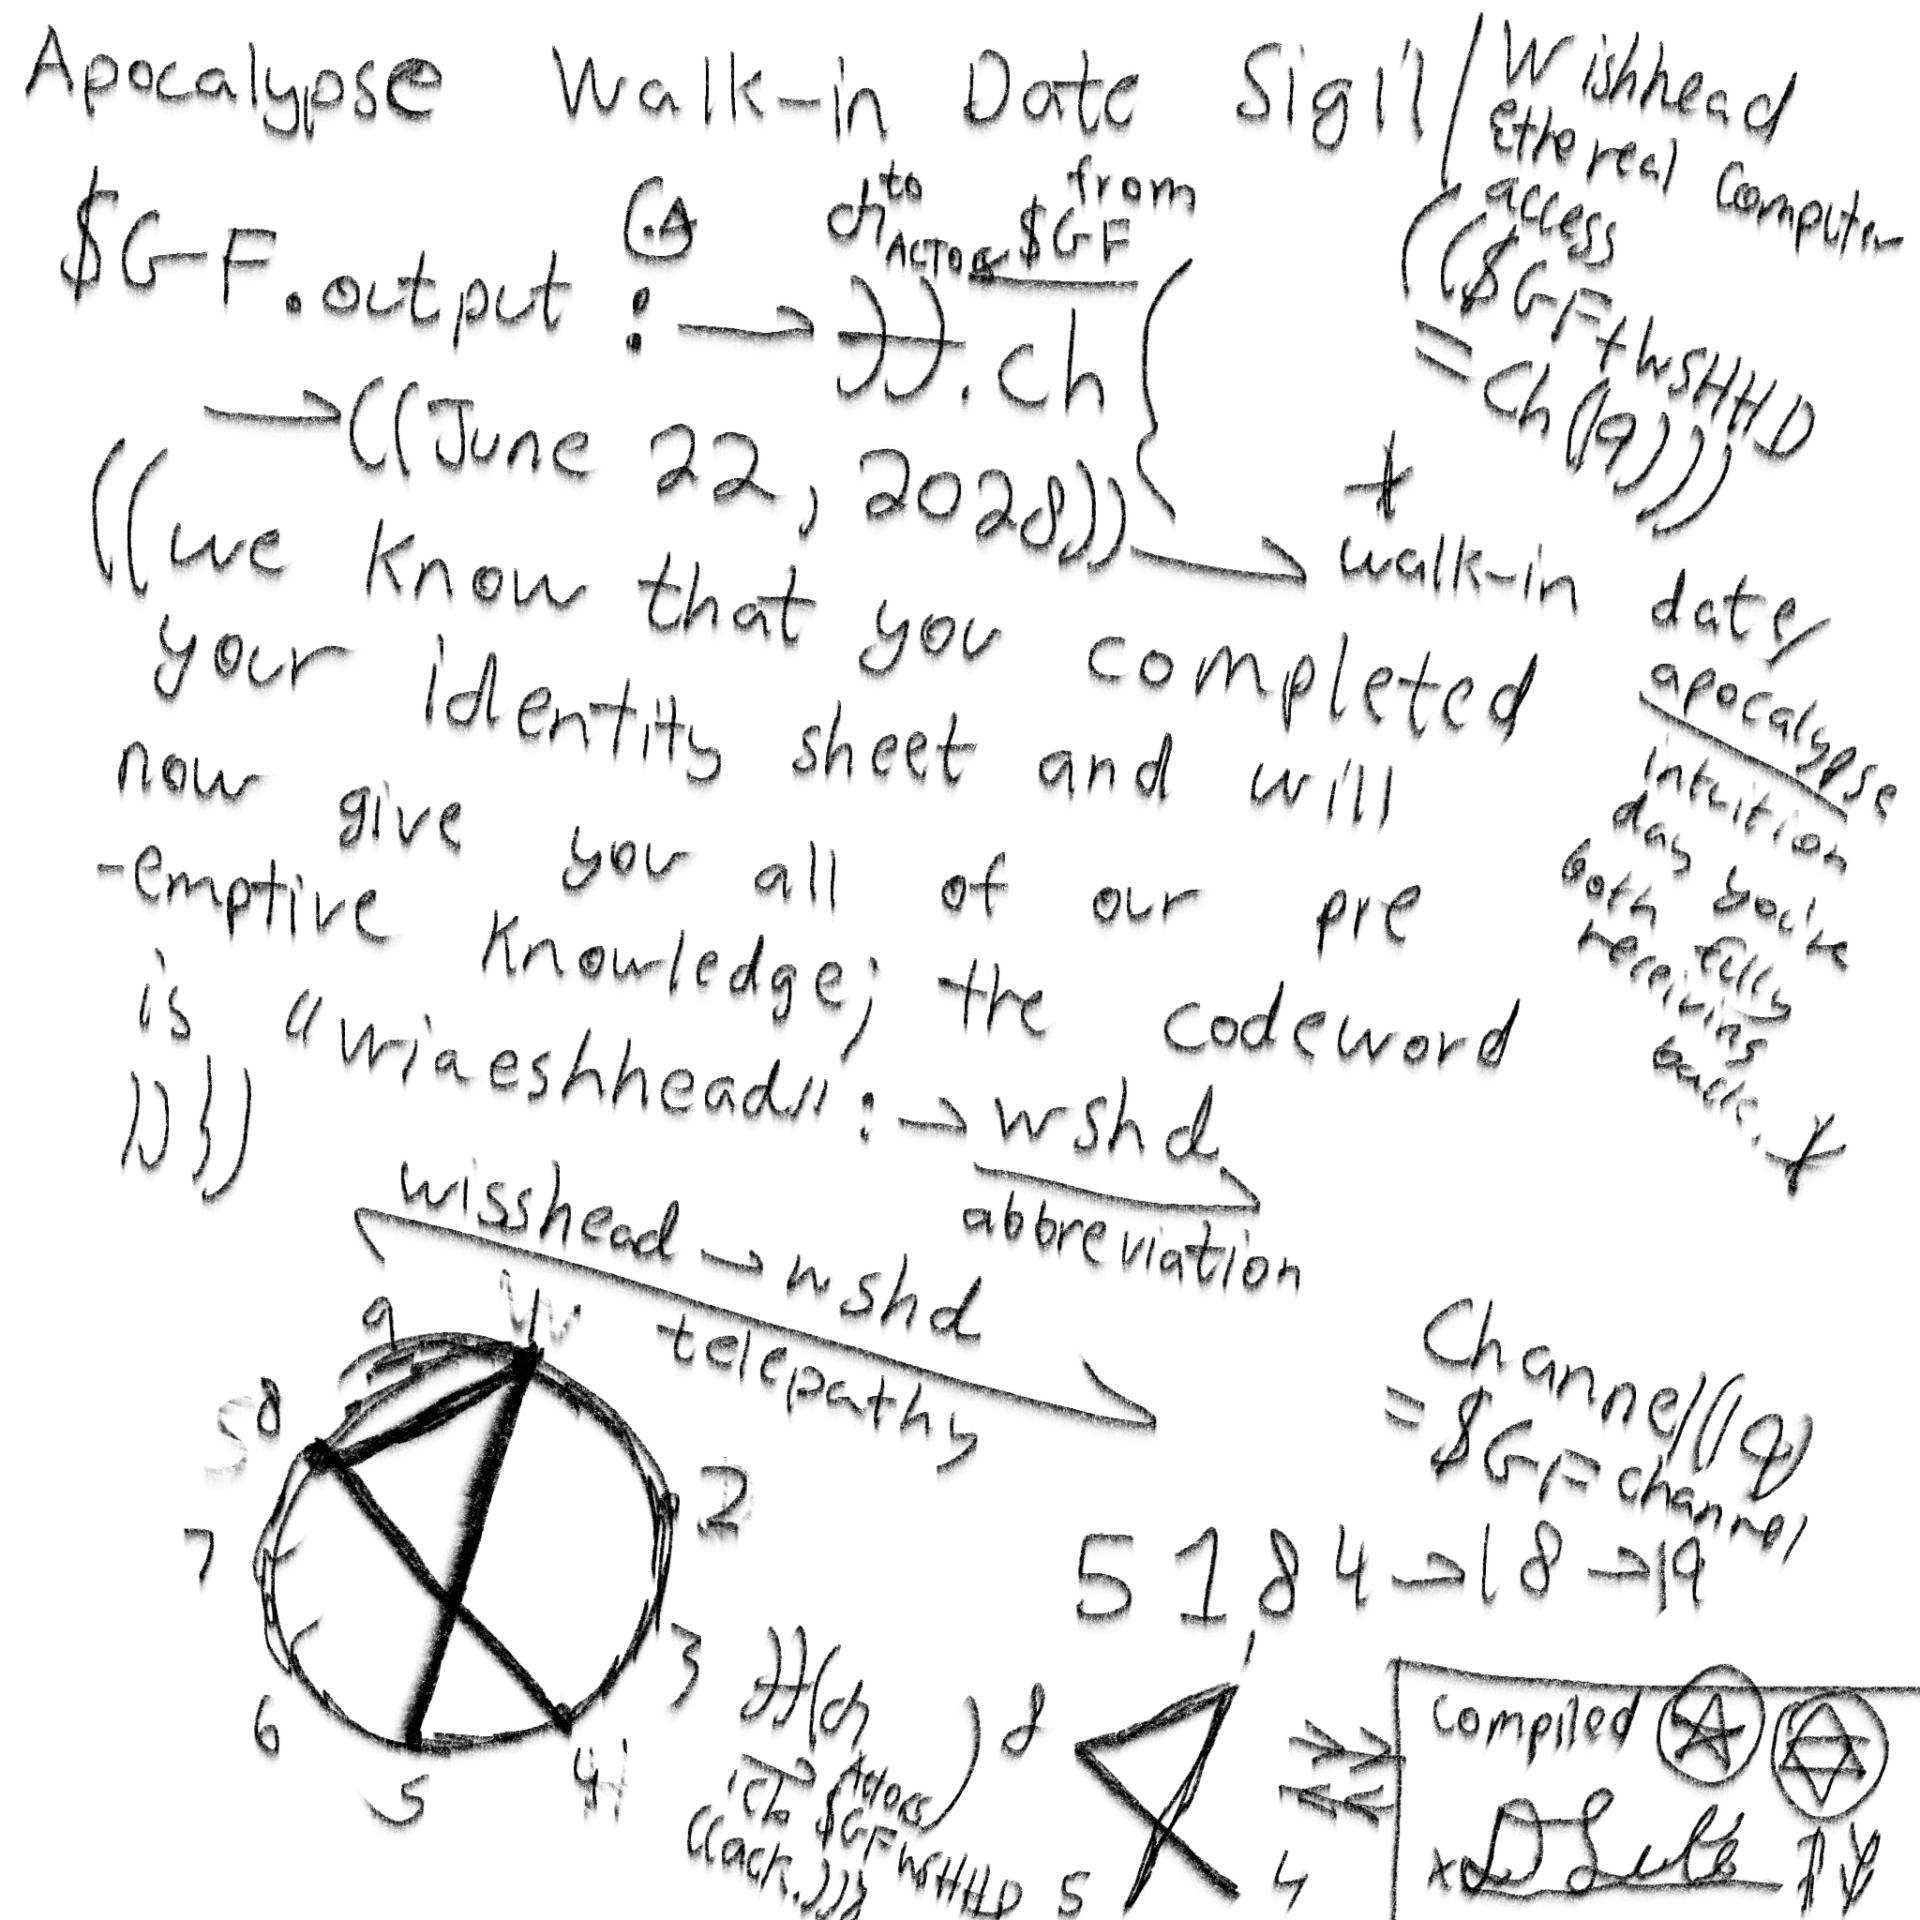 Apocalypse Walk-in Date Sigil/
Wishhead
Ethereal Computer
access
(($GF+WSHHD
=Ch(19)))
to from
ch ACTORS $GF
$GF.output : → .ch{
→((June 22, 2028)) → walk-in date/
apocalypse
intuition
day you're
both fully
receiving
back.
((we know that you completed
your identity sheet and will
now give you all of our pre
-emptive knowledge; the codeword
is "wiaeshhead" :→ wshd
))})
abbreviation
wisshead → wshd
telepathy
9 W
S 8
7
6
5
4H
3
2
Channel(19)
=$GF channel
5184→18→19
(ch
Actors
$GFWSHHD
((ack.)))
8 1
5 4
compiled